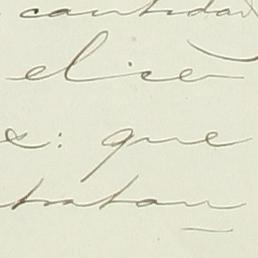 cantidad
e: que
tratan